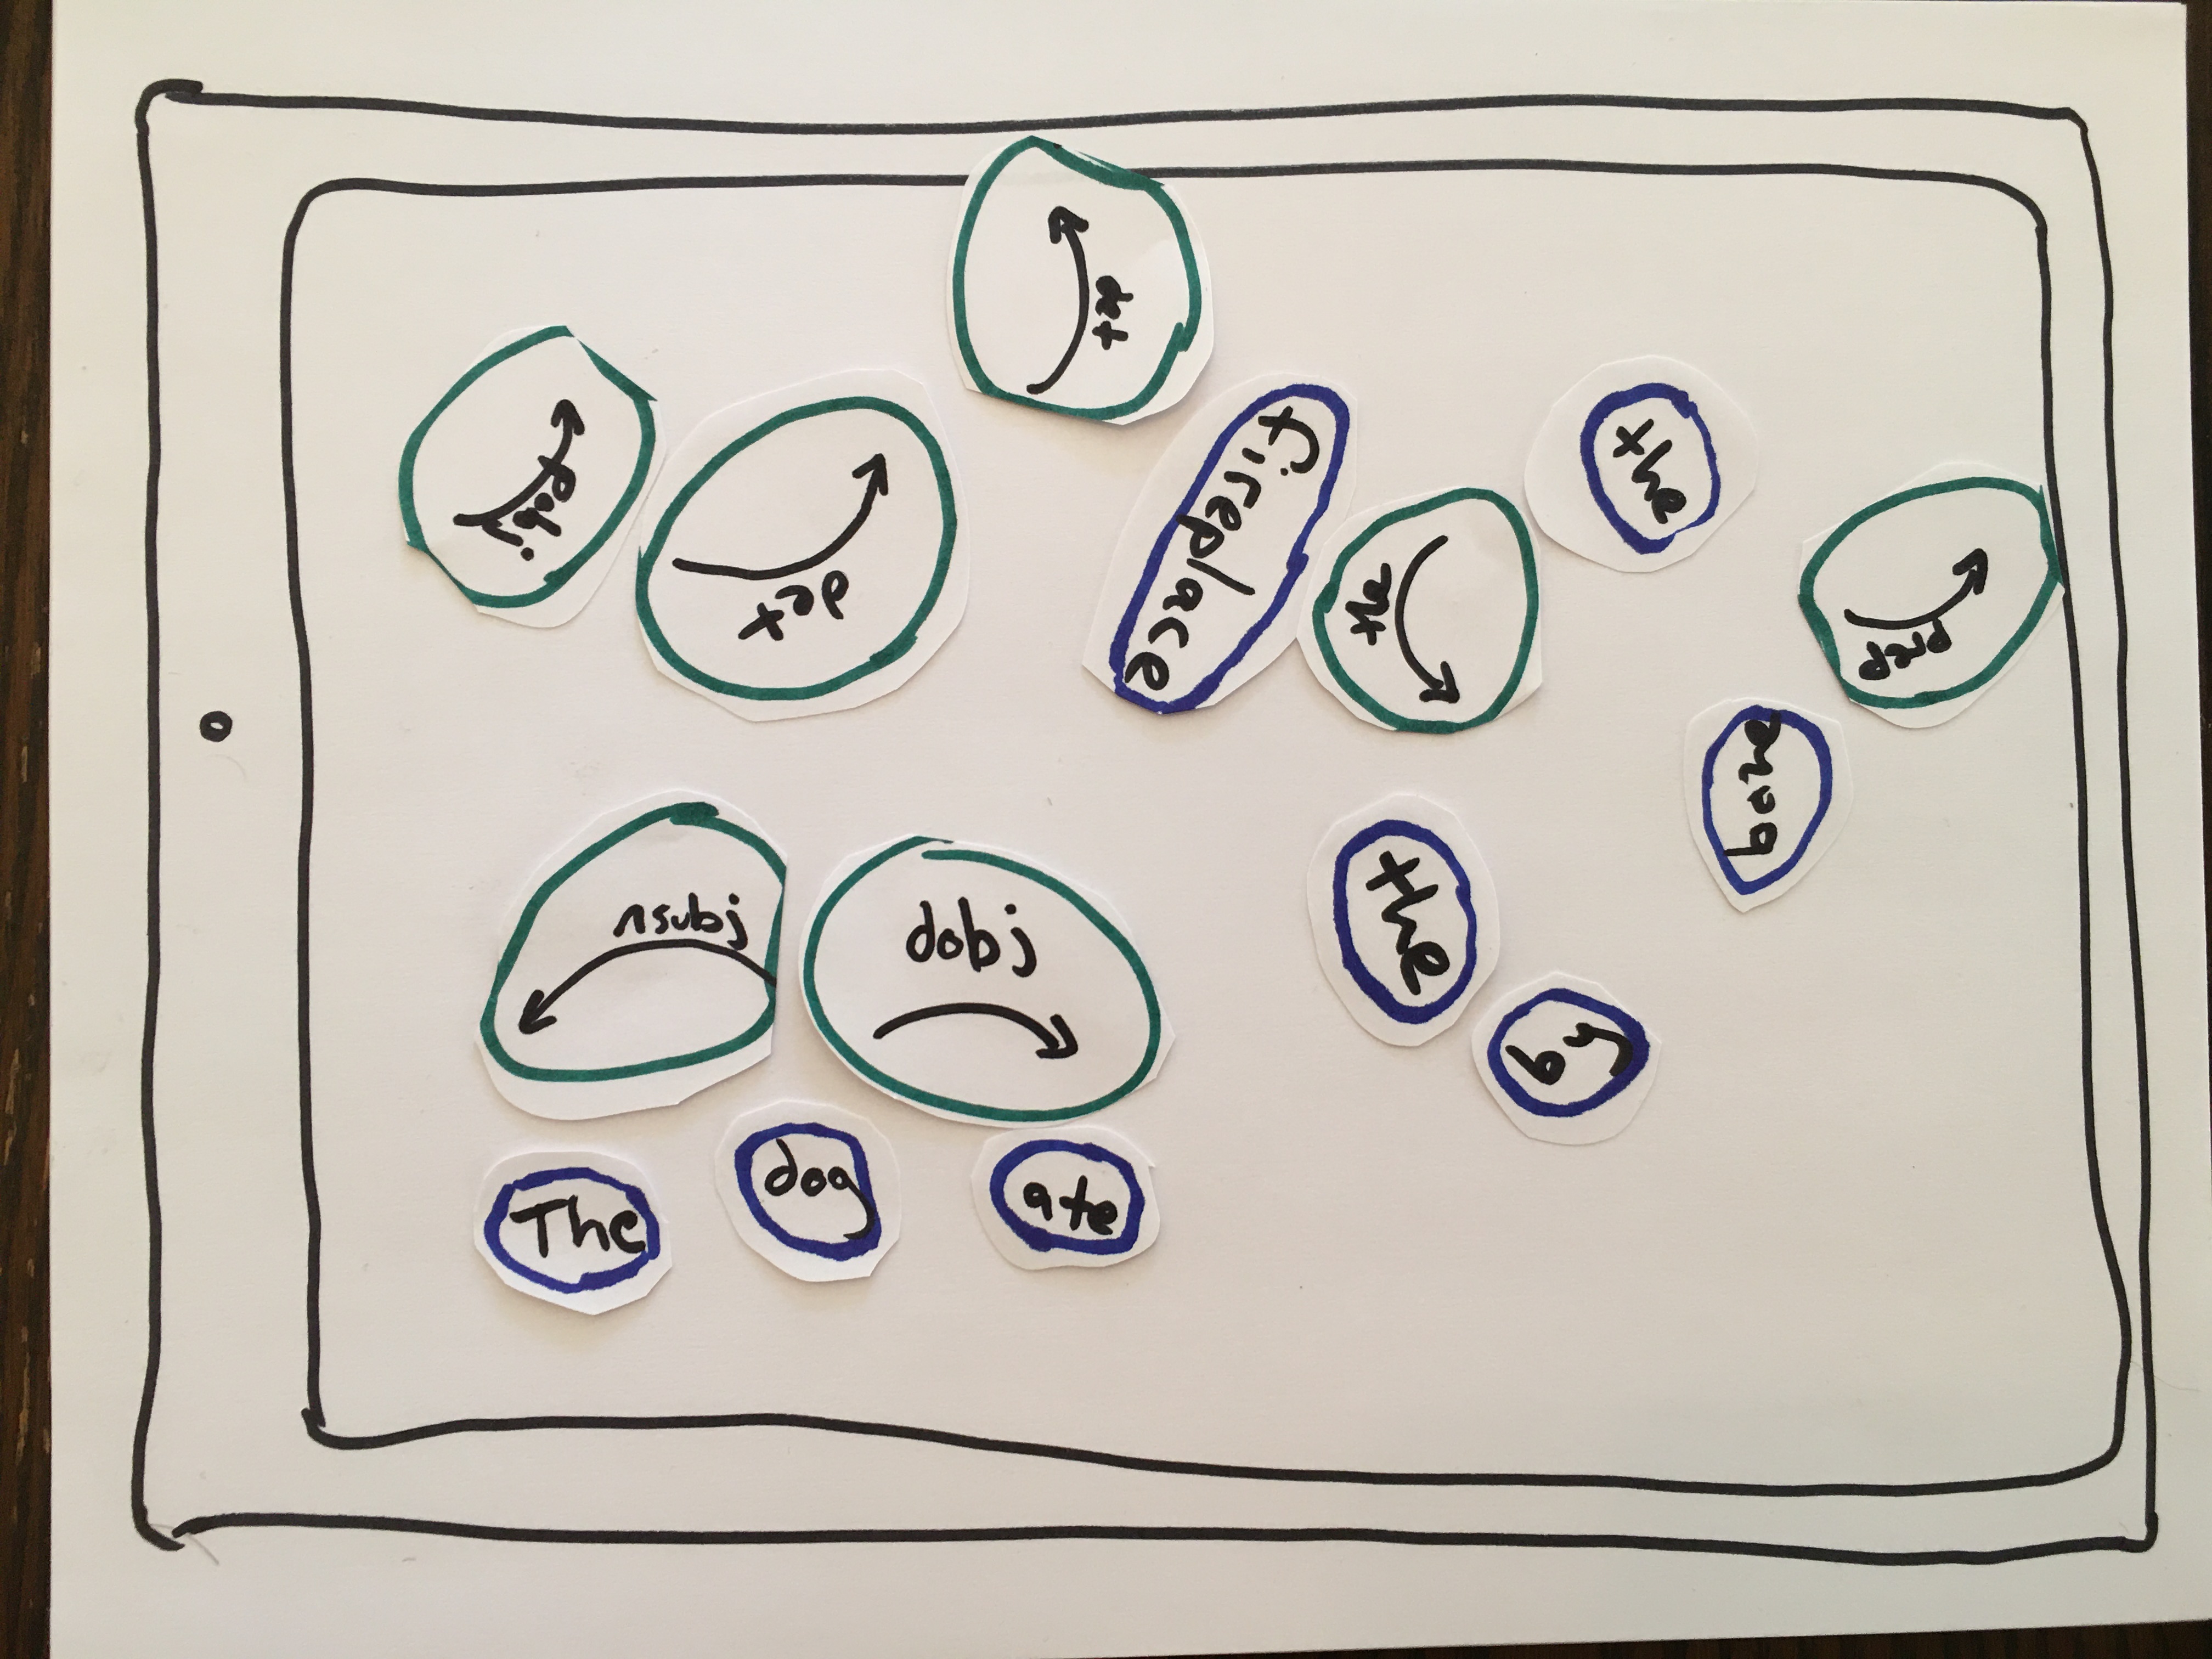 det
pobj
det
fireplace
the
det
prep
bone
nsubj
dobj
the
by
The
dog
ate